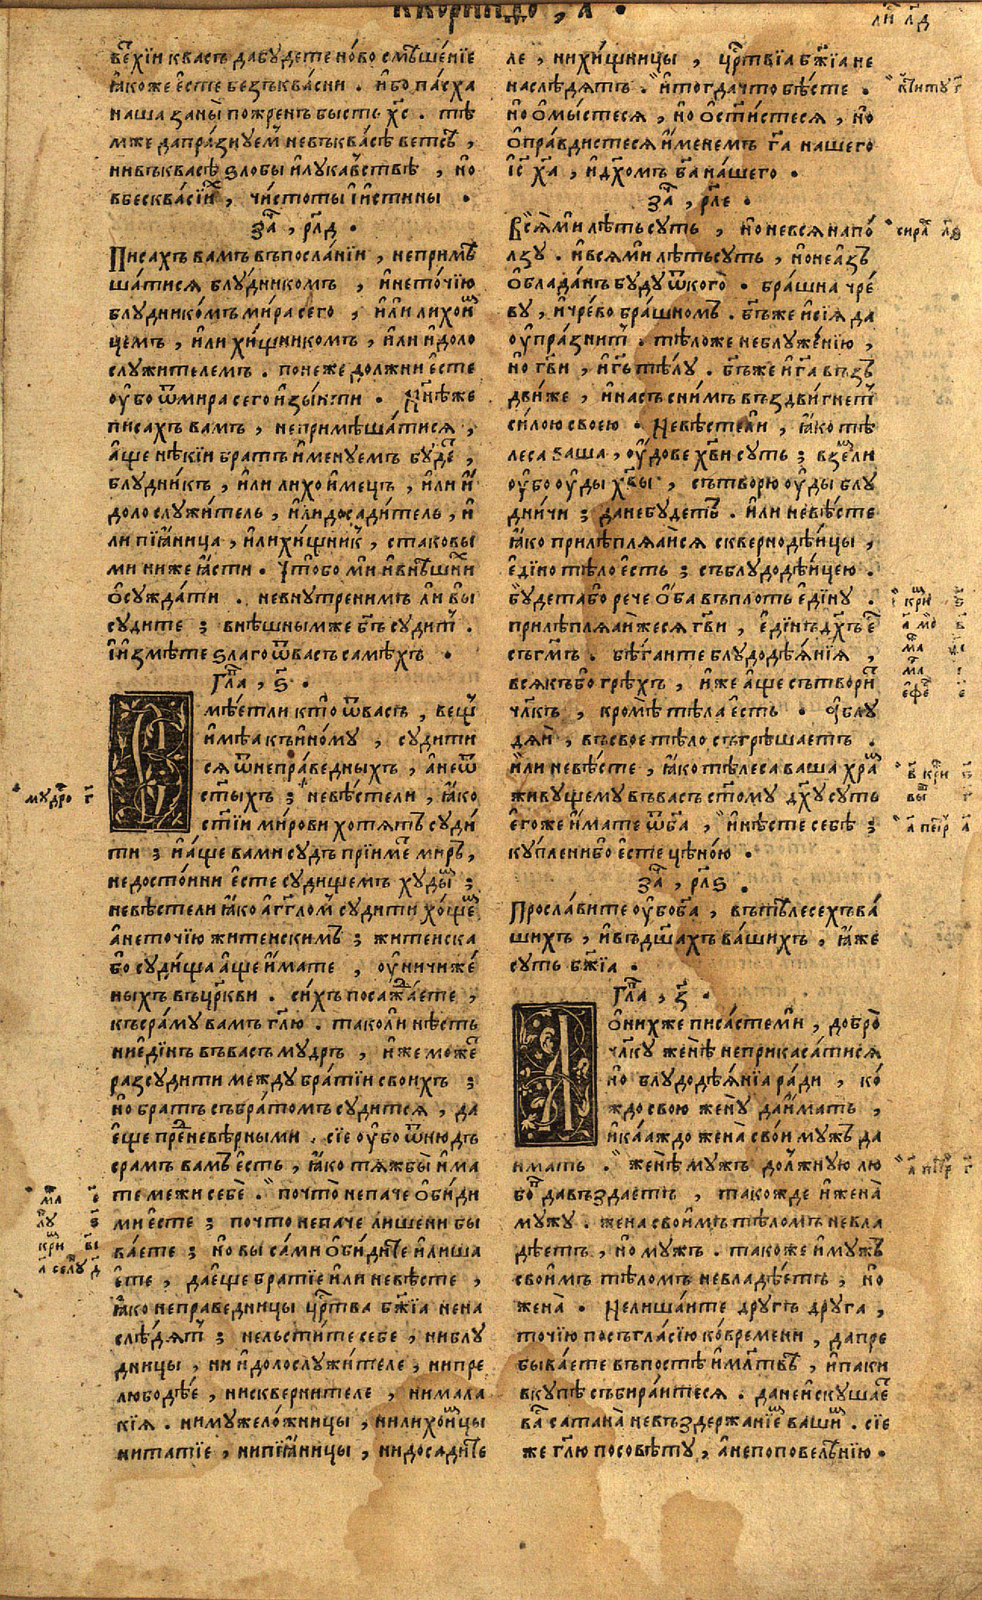 ккоринѳо, а҃ •
ли҃ л҃д
ветхїи квасъ дабудете но́во смѣше́нїе
ꙗ҆коже є҆сте безъква́сни . и҆бо па́сха
наша заны̀ пожренъ бысть хс҃ . тѣ
мже дапра́знуемъ невъква́сѣ ветсѣ ,
нивъквасѣ ѕлобы и҆лука́вствѣ , но
вбесква́сїих , чи́стоты и҆истины .
за҃ , рл҃д •
Писахъ вамъ въпосла́нїи , непримѣ
ша́тися блу́дникомъ , и҆нето́чїю
блудникомъ ми́ра сего , и҆ли лихои
цемъ , и҆ли хи́щникомъ , и҆ли и҆доло
служителемъ . понеже должни є҆сте
оу҆бо ѿмира сего и҆зы́ити . Ны́нѣже
писахъ вамъ , неприме́ша́тися ,
а҆ще нѣкїи братъ и҆менуемъ буде ,
блудникъ , и҆ли лихо и҆мецъ , и҆ли и҆
доло служитель , и҆ли доса́дитель , и҆
ли пїꙗ҆ница , и҆лихи́щник , стаковы
ми ниже ꙗ҆сти . Чтобо ми и҆внѣшних
ѡ҆сужда́ти . невнутренимъ ли вы
судите ; внѣшнымже бг҃ъ судит .
И҆измѣте ѕлаго ѿвасъ самѣхъ .
гла҃ , ѕ҃ •
Смѣетли кто̀ ѿвасъ , вещ
и҆мѣа къи҆но́му , судити
ся ѿнепра́ведныхъ , а҆неѿ
ст҃ыхъ ; невѣстели , ꙗ҆ко
ст҃їи ми́рови хотятъ суди
ти ; и҆а҆ще вами судъ прїиме миръ ,
недосто́ини є҆сте судищемъ худы ;
невѣстели ꙗ҆ко а҆гг҃лом судити хо́ще
а҆неточїю житеискимъ ; житеиска
бо суди́ща а҆ще и҆мате , оу҆ничиже́
ныхъ въцр҃кви . си́хъ посажа́ете ,
къ сра́му вамъ гл҃ю . тако ли нѣсть
ниє҆ди́нъ въвасъ мудръ , и҆же може
разсудити между братїи своихъ ;
но братъ събра́томъ судится , да
є҆ще пре невѣ́рными . сїе оу҆бо ѿнюдъ
срамъ вамъ є҆сть , ꙗ҆ко тя́жбы и҆ма
те межи себѐ . почто̀ непаче ѡ҆биди
ми є҆сте ; почто непаче лишени бы
ва́ете ; но вы са́ми ѡ҆би́дите и҆лиша
є҆те , дає҆ще братїе и҆ли невѣсте ,
ꙗ҆ко неправедницы цр҃тва бж҃їа нена
слѣ́дят ; нельсти́те себе , ниблу
дницы , ни и҆долослужи́теле , нипре
любодѣе , нисквернителе , нимала
кїя . нимужело́жницы , нилихоимцы
нитатїе , нипїꙗ҆ницы , нидосадите
ле , нихи́щницы , цр҃твїа бж҃їа не
наслѣ́дятъ . и҆тогдачто бѣсте .
но ѡ҆мы́стеся , но ѡ҆ст҃и́стеся , но
ѡ҆пра́вдистеся и҆менемъ га҃ нашего
і҆с҃ ха҃ , и҆дх҃омъ ба҃ на́шего .
за҃ , рл҃е •
Всѧ̀ ми лѣть суть , но невся напо́
лзу . и҆вся ми лѣть суть , но неа҆зъ
ѡ҆блада́нъ буду ѿкого̀ . бра́шна чре́
ву , и҆чре́во бра́шномъ . бг҃ъже и҆сїя да
оу҆пра́знит . тѣложе неблуже́нїю ,
но гв҃и , и҆гь҃ тѣ́лу . бг҃ъже и҆га҃ въз
дви́же , и҆насъ сни́мъ въздви́гнет
си́лою своею . Невѣстели , ꙗ҆ко тѣ
леса ваша , оу҆дове хв҃и суть ; взе́мли
оу҆бо оу҆ды хв҃ы , сътворю оу҆ды блу
дни́чи ; данебудетъ . и҆ли невѣсте
ꙗ҆ко прилѣпля́аися сквернодѣ́ицы ,
є҆дїно тѣло є҆сть ; съблудодѣ́ицею .
будетабо рече ѡ҆ба въплоть є҆дїну .
прилѣпля́аижеся гв҃и , є҆дїнъ дх҃ъ е҆
съгм҃ъ . бѣгаите блудодѣѧ́нїя ,
всякъбо грѣхъ , и҆же а҆ще сътвори
чл҃къ , кромѣ тѣла є҆сть . а҆блу
дяи , въсвое тѣло съгрѣшаетъ .
И҆ли невѣсте , ꙗ҆ко тѣлеса ваша хра
живущему въвасъ ст҃ому дх҃у суть
є҆гоже и҆мате ѿба҃ , и҆нѣсте себѣ ;
куплени бо є҆сте цѣно́ю .
за҃ , рл҃ѕ •
Просла́вите оу҆бо ба҃ , вътѣлесехъ ва́
шихъ , и҆въдш҃ахъ ва́шихъ , ꙗ҆же
суть бж҃їа .
гла҃ , з҃ •
А ѡ҆нихже писа́стеми , добро̀
чл҃ку женѣ̀ неприкаса́тися
но блудодѣѧ́нїа ра́ди , ко́
ждо свою жену̀ даи҆мать ,
и҆ка́аждо жена̀ свои мужъ да
имать . женѣ̀ мужъ до́лжную лю
бо давъздаетъ , такожде и҆жена̀
мужу . жена свои́мъ тѣломъ невла
дѣетъ , но мужъ . такоже и҆мужъ
свои́мъ тѣломъ невладѣ́етъ , но
жена̀ . Нелиша́ите другъ друга ,
точїю посъгла́сїю ко́времени , дапре
быва́ете въпостѣ и҆мл҃твѣ , и҆паки
вкупѣ събира́итеся . данеи҆скушае
ва сатана̀ невъздержанїем ваши . сїе
же гл҃ю посовѣту , а҆непоповелѣнїю .
мудро г҃
сира л҃з